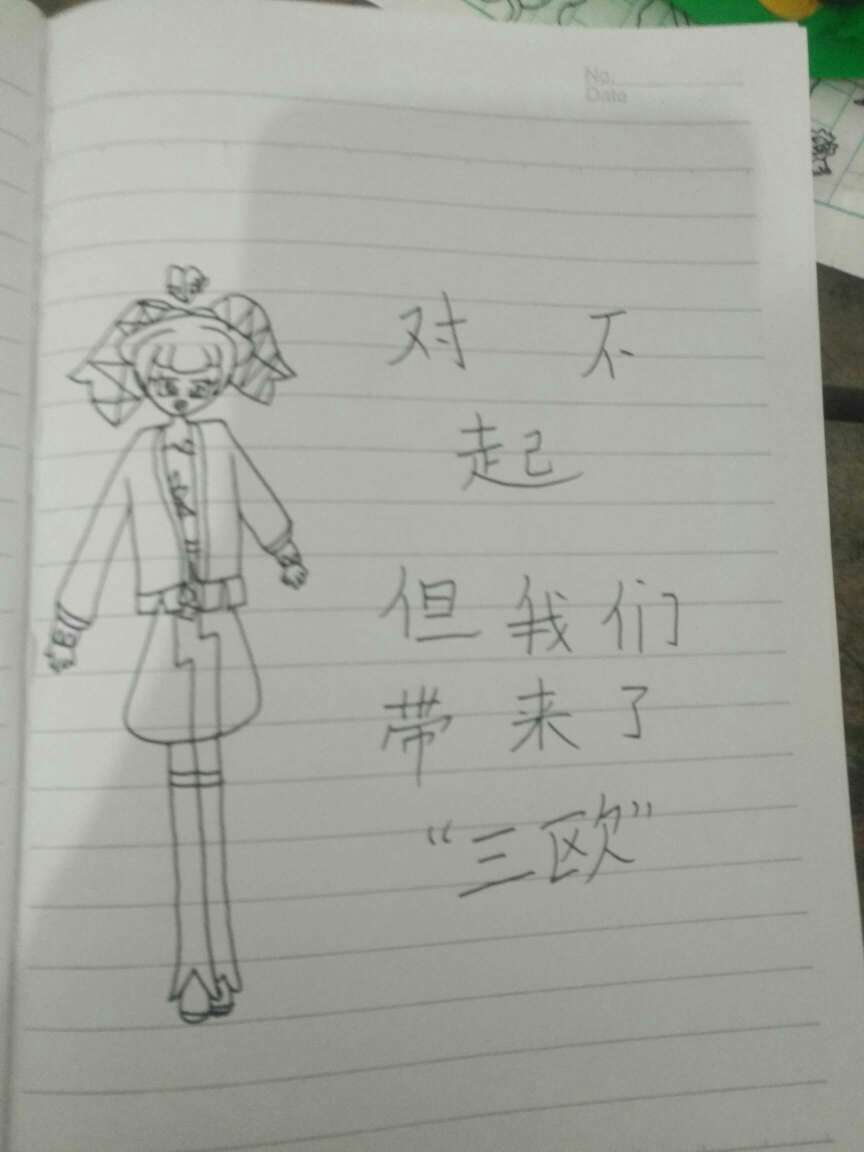 No.
Date
对不
起
但我们
带来了
“三欧”